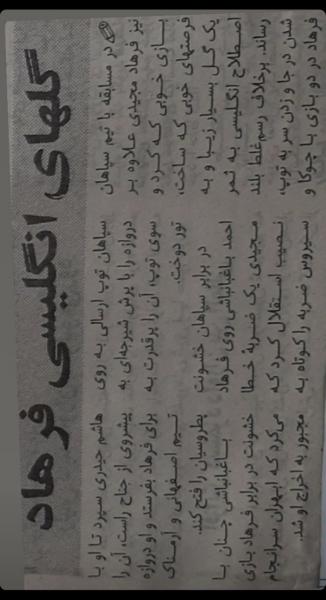 گلهای انگلیسی فرهاد
در مسابقه با تیم سپاهان
نیز فرهاد مجیدی علاوه بر
بازی خوبی که کرد و
فرصتهای خوبی که ساخت،
یک گل بسیار زیبا و به
اصطلاح انگلیسی به ثمر
رساند. برخلاف رسم غلط بلند
شدن در جا و زدن سر به توپ،
فرهاد در دو بازی با چوکا و
سپاهان توپ ارسالی به روی
دروازه را با پرش شیرجه‌ای به
سوی توپ، آن را پرقدرت به
تور دوخت.
در برابر سپاهان خشونت
احمد باغبانباشی روی فرهاد
مجیدی یک ضربهٔ خطا
نصیب استقلال کرد که
سیروس ضربه را کوتاه به
هاشم حیدری سپرد تا او با
پیشروی از جناح راست، آن را
برای فرهاد بفرستد و او دروازه
تیم اصفهانی و
پطروسیان را فتح کند.
باغبانباشی چنان با
خشونت در برابر فرهاد بازی
می‌کرد که سرانجام
مجبور به اخراج او شد.